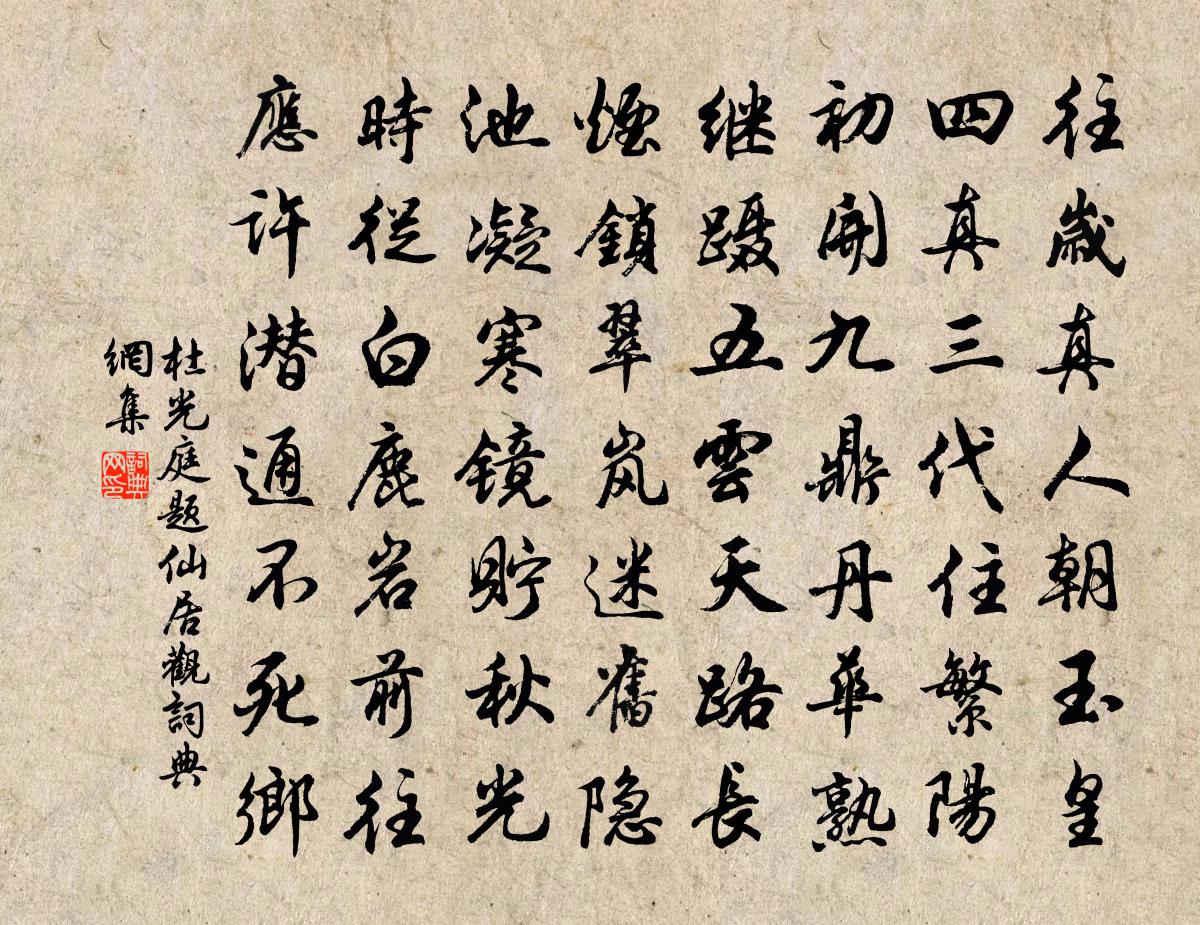 往歲真人朝玉皇
四真三代住繁陽
初開九鼎丹華熟
继蹑五雲天路長
煙鎖翠岚迷舊隐
池凝寒镜貯秋光
時從白鹿岩前往
應許潜通不死鄉
杜光庭题仙居觀詞典
網集
詞典网印